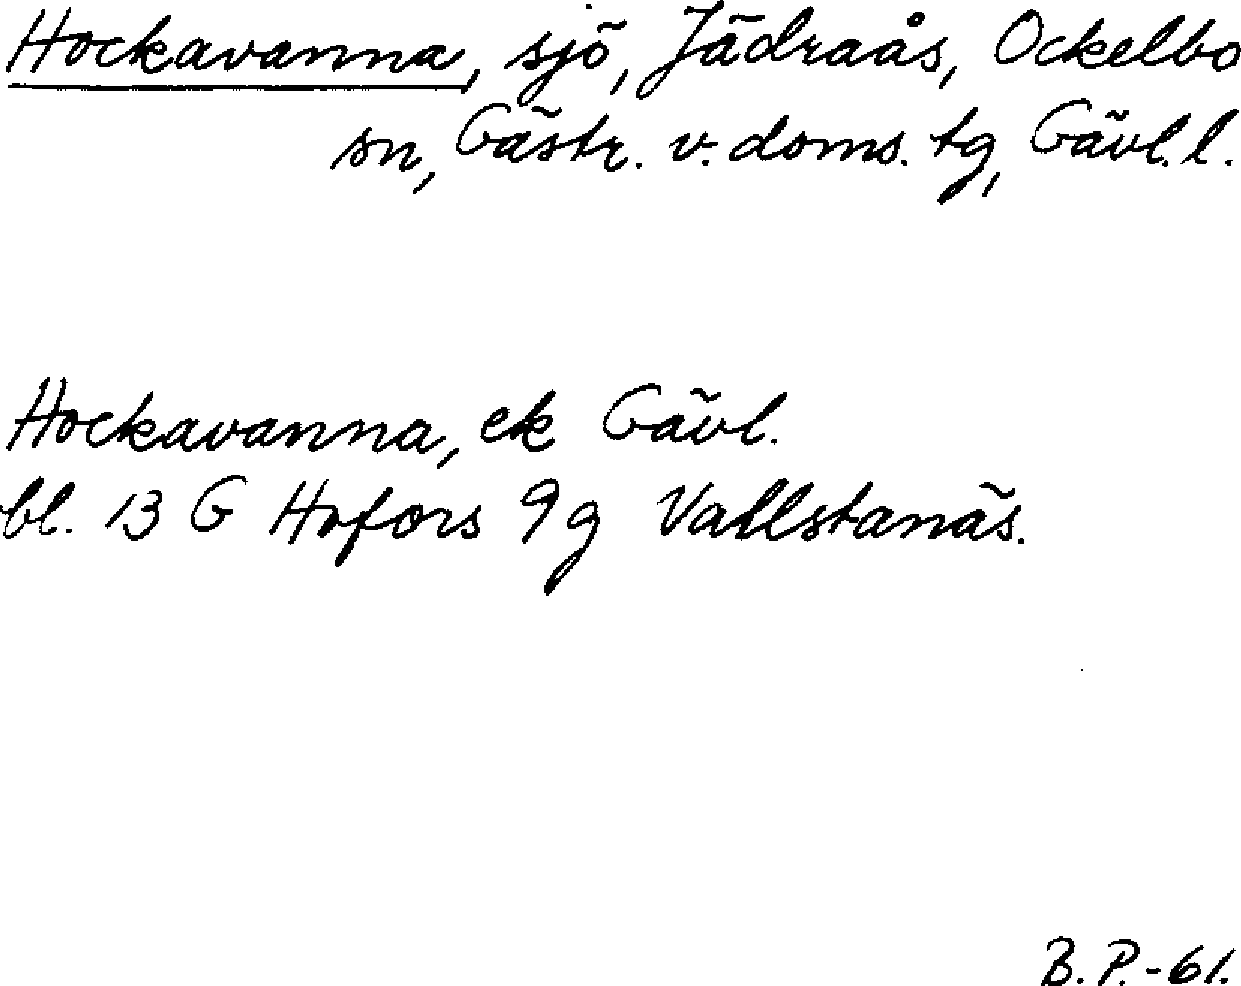 Hockavanna, sjö, Jädraås, Ockelbo
sn, Gästr. v. doms. tg, Gävl. l.
Hockavanna, ek Gävl.
bl. 13 G Hofors 9g Vallstanäs.
B. P. - 61.